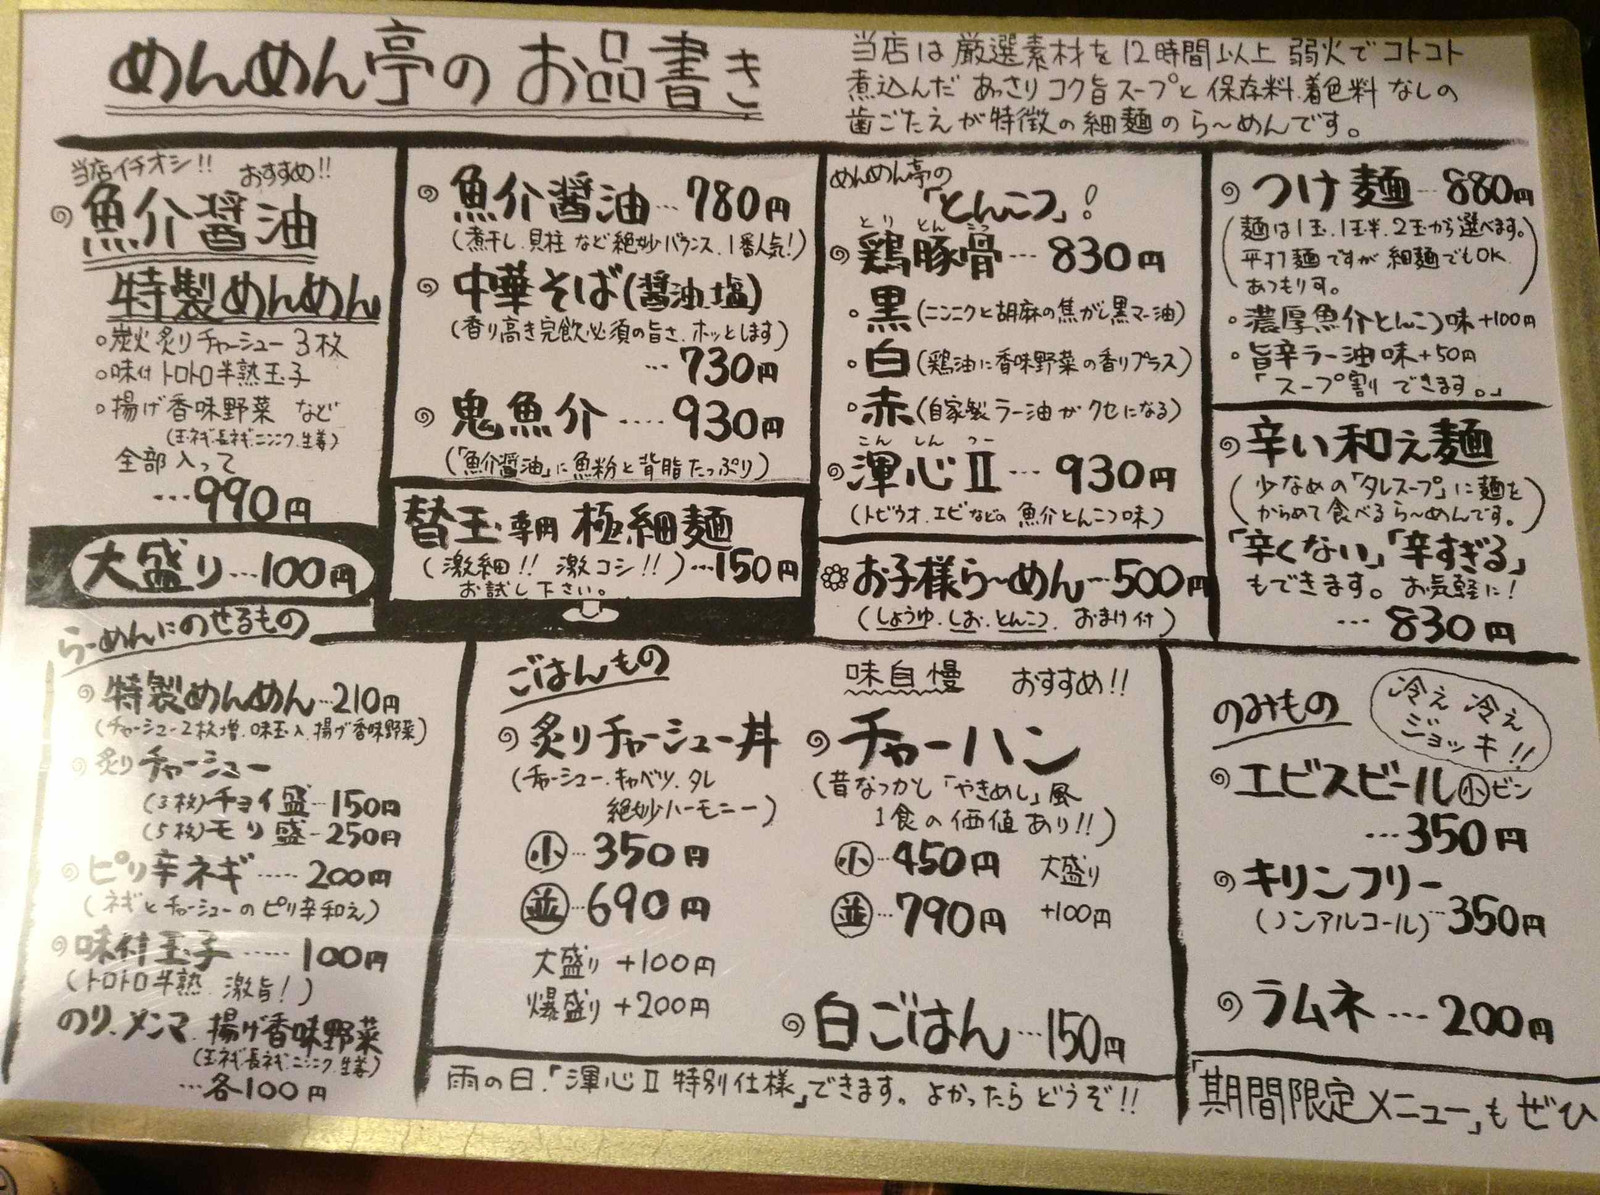 めんめん亭のお品書き
当店は厳選素材を12時間以上 弱火でコトコト
煮込んだ あっさりコク旨スープと 保存料.着色料 なしの
歯ごたえが特徴の細麺のら〜めんです。
当店イチオシ!! おすすめ!!
魚介醤油
特製めんめん
炭火炙りチャーシュー 3枚
味付トロトロ半熟玉子
揚げ香味野菜 など
(玉ネギ.長ネギ.ニンニク.生姜)
全部入って
…990円
大盛り…100円
魚介醤油…780円
(煮干し.貝柱など絶妙バランス.1番人気!)
中華そば(醤油.塩)
(香り高き完飲必須の旨さ.ホッとします)
…730円
鬼魚介‥‥930円
(「魚介醤油」に魚粉と背脂たっぷり)
替玉専用 極細麺
(激細!! 激コシ!!)…150円
お試し下さい。
めんめん亭の
「とんこつ」!
とり とん こつ
鶏豚骨…830円
黒(ニンニクと胡麻の焦がし黒マー油)
白(鶏油に香味野菜の香りプラス)
赤(自家製ラー油がクセになる)
こん しん つー
渾心Ⅱ…930円
(トビウオ.エビなどの魚介とんこつ味)
お子様ら〜めん…500円
(しょうゆ.しお.とんこつ. おまけ付)
つけ麺…880円
(麺は1玉.1玉半.2玉から選べます。
平打麺ですが細麺でもOK.
あつもりす。)
濃厚魚介とんこつ味+100円
旨辛ラー油味+50円
「スープ割 できます。」
辛い和え麺
(少なめの「タレスープ」に麺を
からめて食べるら〜めんです。)
「辛くない」「辛すぎる」
もできます。お気軽に!
…830円
らーめんにのせるもの
特製めんめん…210円
(チャーシュー2枚増.味玉入.揚げ香味野菜)
炙りチャーシュー
(3枚)チョイ盛…150円
(5枚)モリ盛…250円
ピリ辛ネギ‥‥‥200円
(ネギとチャーシューのピリ辛和え)
味付玉子‥‥‥100円
(トロトロ半熟.激旨!)
のり.メンマ.揚げ香味野菜
(玉ネギ.長ネギ.ニンニク.生姜)
…各100円
ごはんもの
炙りチャーシュー丼
(チャーシュー.キャベツ.タレ
絶妙ハーモニー)
小…350円
並…690円
大盛り+100円
爆盛り+200円
味自慢 おすすめ!!
チャーハン
(昔なつかし「やきめし」風
1食の価値あり!!)
小…450円
並…790円
大盛り
+100円
白ごはん…150円
のみもの
冷え冷え
ジョッキ!!
エビスビール小ビン
…350円
キリンフリー
(ノンアルコール)…350円
ラムネ…200円
雨の日.「渾心Ⅱ特別仕様」できます。よかったらどうぞ!!
「期間限定メニュー」もぜひ